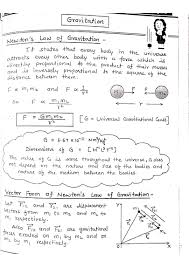 Gravitation
Newton's Law of Gravitation -
It states that every body in the universe
attracts every other body with a force which is
directly proportional to the product of their masses
and is inversely proportional to the square of the
distance between them.
F ∝ m₁m₂ and F ∝ 1/r²
so F ∝ m₁m₂/r²
F = Gm₁m₂/r² [G = Universal Gravitational Constt]
G = 6.67 × 10⁻¹¹ Nm²/kg²
Dimensions of G = [M⁻¹L³T⁻²]
The value of G is same throughout the universe, G does
not depend on the nature and size of the bodies and
nature of the medium between the bodies.
Vector Form of Newton's Law of Gravitation:-
Let r₁₂ and r₂₁ are displacement
vectors from m₁ to m₂ and m₂ to
m₁ respectively.
Also F₁₂ and F₂₁ are gravitational
force exerted on m₁ by m₂ and on m₂
by m₁ respectively.